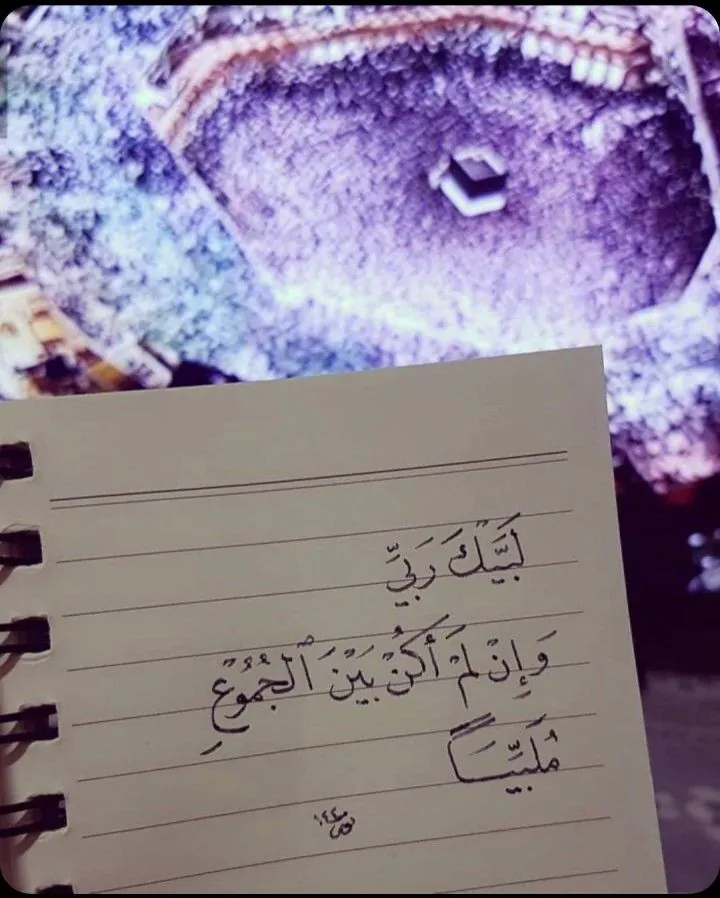 لَبَّيْكَ رَبِّيَ
وَإِنْ لَمْ أَكُنْ بَيْنَ ٱلْجُمُوْعِ
مُلَبِّيَــاً